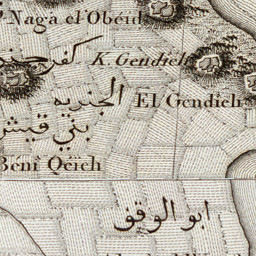 Naga el Obéid
K. Gendich
الجنديه
El Gendich
بني قيش
Béni Qéich
ابو الوقف